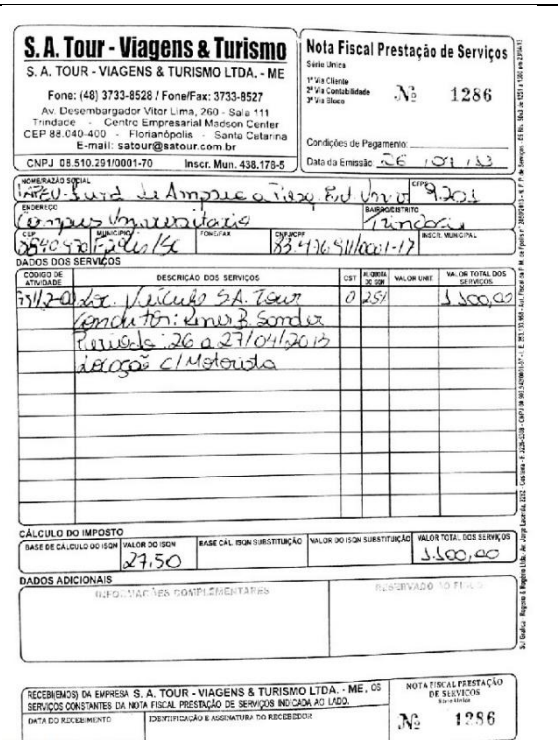 S. A. Tour - Viagens & Turismo
S. A. TOUR - VIAGENS & TURISMO LTDA. - ME
Fone: (48) 3733-8528 / Fone/Fax: 3733-8527
Av. Desembargador Vitor Lima, 260 - Sala 111
Trindade - Centro Empresarial Madson Center
CEP 88.040-400 - Florianópolis - Santa Catarina
E-mail: satour@satour.com.br
CNPJ 08.510.291/0001-70 Inscr. Mun. 438.178-5
Nota Fiscal Prestação de Serviços
Série Única
1ª Via Cliente
2ª Via Contabilidade
3ª Via Bloco
Nº 1286
Condições de Pagamento:
Data da Emissão
NOME/RAZÃO SOCIAL
CFPS
9.201
ENDEREÇO
BAIRRO/DISTRITO
Campus Universitario
CEP MUNICÍPIO FONE/FAX CNPJ/CPF INSCR. MUNICIPAL
83.476.911/0001-17
DADOS DOS SERVIÇOS
CÓDIGO DE ATIVIDADE DESCRIÇÃO DOS SERVIÇOS CST ALÍQUOTA DO ISQN VALOR UNIT. VALOR TOTAL DOS SERVIÇOS
Loc. Veículo S.A. Tour 0 1.100,00
Condutor:
Periodo: 26 a 27/04/2013
Locação c/ Motorista
CÁLCULO DO IMPOSTO
BASE DE CÁLCULO DO ISQN VALOR DO ISQN BASE CÁL. ISQN SUBSTITUIÇÃO VALOR DO ISQN SUBSTITUIÇÃO VALOR TOTAL DOS SERVIÇOS
27,50 1.100,00
DADOS ADICIONAIS
INFORMAÇÕES COMPLEMENTARES RESERVADO AO FISCO
RECEBI(EMOS) DA EMPRESA S. A. TOUR - VIAGENS & TURISMO LTDA. - ME, OS
SERVIÇOS CONSTANTES DA NOTA FISCAL PRESTAÇÃO DE SERVIÇOS INDICADA AO LADO.
DATA DO RECEBIMENTO IDENTIFICAÇÃO E ASSINATURA DO RECEBEDOR
NOTA FISCAL PRESTAÇÃO
DE SERVIÇOS
Série Única
Nº 1286